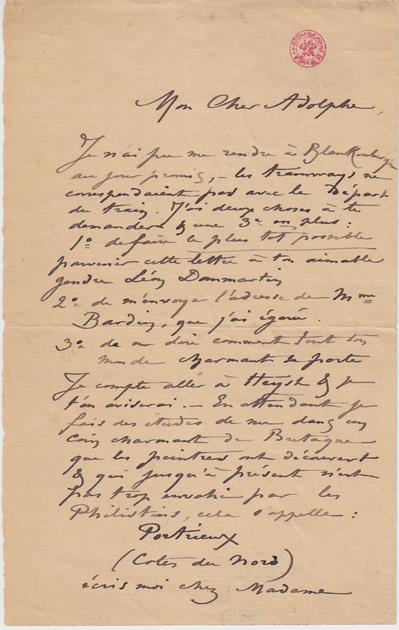 Mon Cher Adolphe,
Je n'ai pu me rendre à Blankenberghe
au jour promis, – les tramways ne
correspondaient pas avec le Départ
du train. J'ai deux choses à te
demander & une 3e en plus :
1o de faire le plus tôt possible
parvenir cette lettre à ton aimable
gendre Léon Dommartin
2o de m'envoyer l'adresse de Mme
Bardin, que j'ai égarée.
3o de me dire comment tout ton
monde charmant se porte
Je compte aller à Heyst & je
t'en aviserai. – En attendant je
fais des études de mer dans un
coin charmant de Bretagne
que les peintres ont découvert
& qui jusqu'à présent n'est
pas trop envahi par les
Philistins, cela s'appelle :
Portrieux
(Cotes du Nord)
écris moi chez Madame